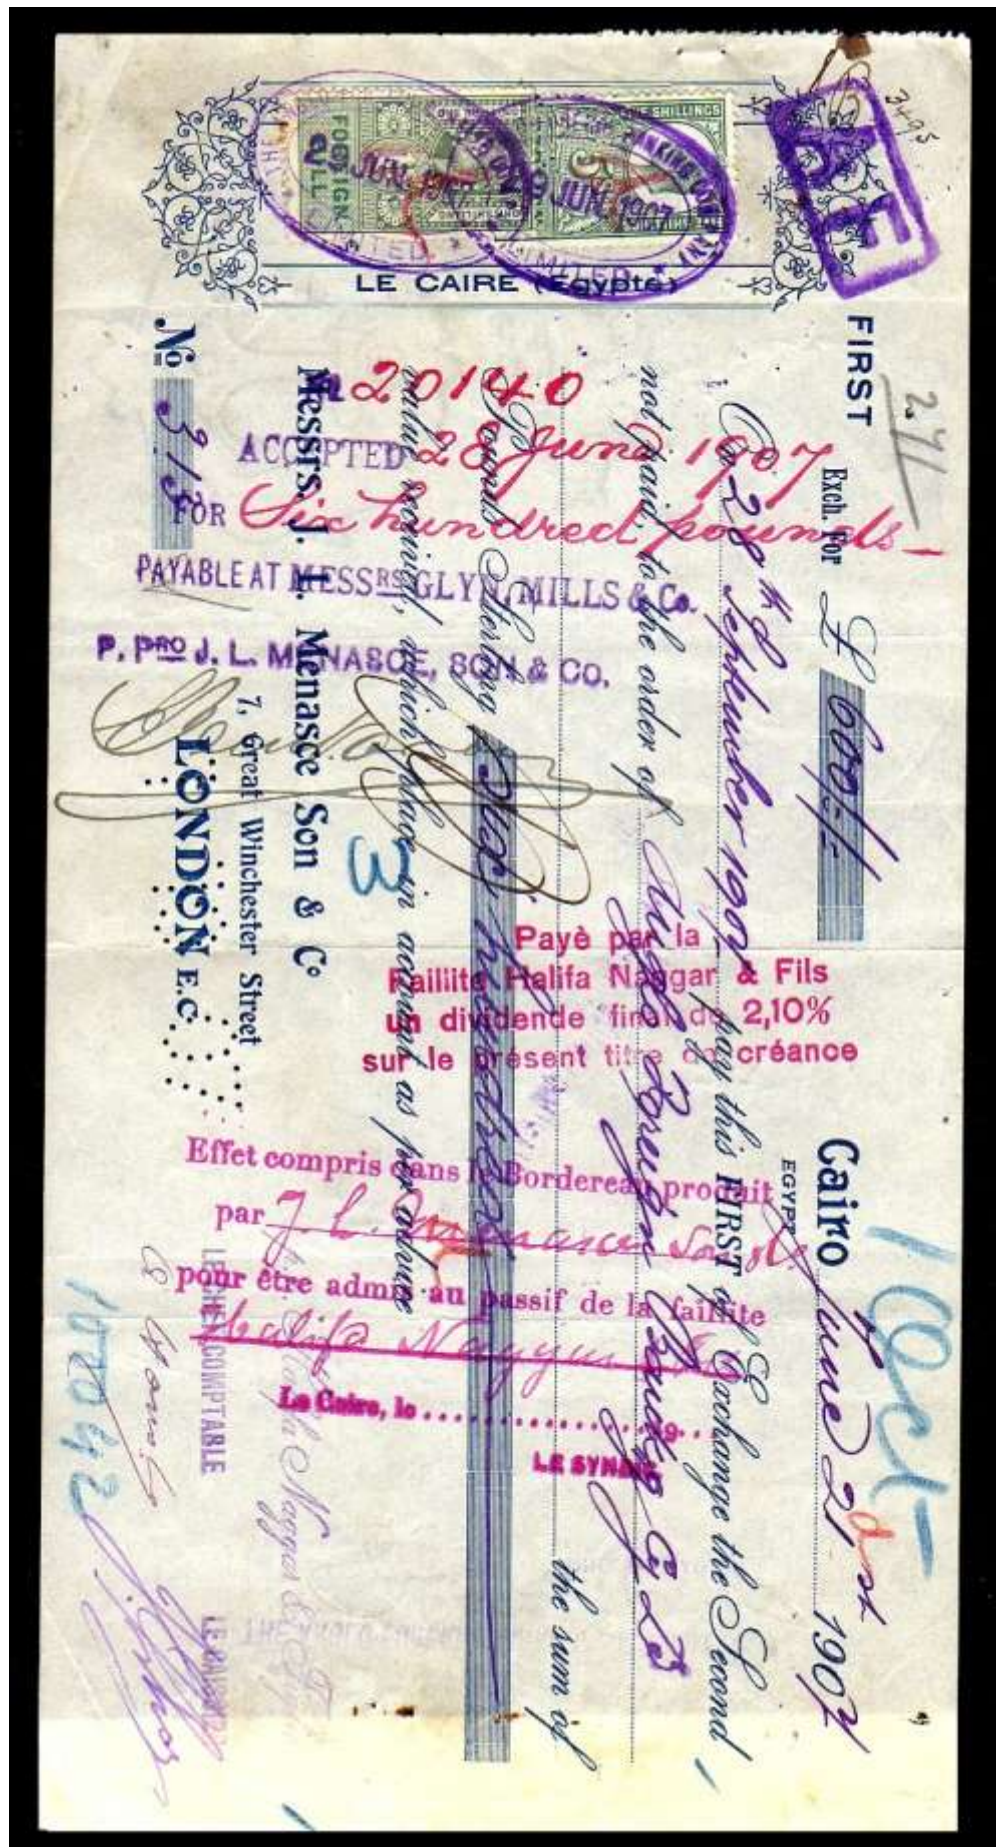 3495
A E
FOREIGN
BILL
SHILLINGS
JUN. 1907
JUN. 1907
LIMITED
LE CAIRE (Egypte)
241
FIRST Exch. For £ 600-/- Cairo June 21st 1907
EGYPT
On 28th September 1907 pay this FIRST of Exchange the Second
not paid, to the order of Anglo Foreign Banking Co Ld
the sum of
Pounds Sterling Six hundred
value received, which place in account as per advice
Messrs. J. L. Menasce Son & Co
7, Great Winchester Street
LONDON E.C.
No 315
20140
ACCEPTED 28 June 1907
FOR Six hundred pounds-
PAYABLE AT MESSRS GLYN, MILLS & Co.
P. PRO J. L. MENASCE, SON & CO.
3
Payè par la
Faillite Halifa Naggar & Fils
un dividende final de 2,10%
sur le présent titre de créance
Effet compris dans le Bordereau produit
par J. L. Menasce Son &
pour être admis au passif de la faillite
Halifa Naggar
Le Caire, le .......... 19...
LE SYNDIC
1 Oct-
LE CHEF COMPTABLE
Naggar &